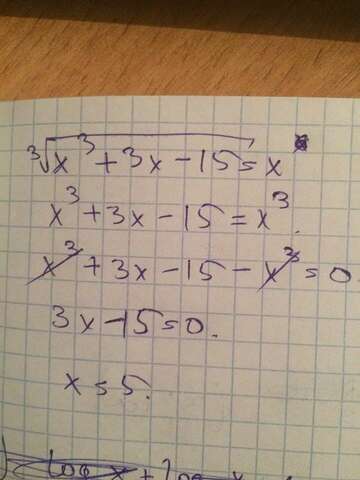 ∛(x³+3x-15)=x
x³+3x-15=x³.
x³+3x-15-x³=0
3x-15=0.
x=5.